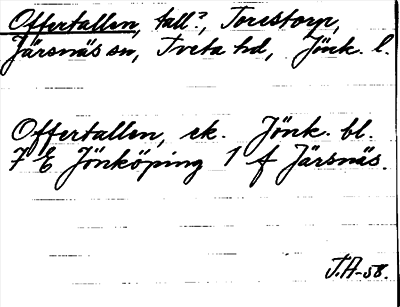 Offertallen, tall?, Torestorp,
Järsnäs sn, Tveta hd, Jönk. l.
Offertallen, ek. Jönk. bl.
7 E Jönköping 1 f Järsnäs.
J.A-58.